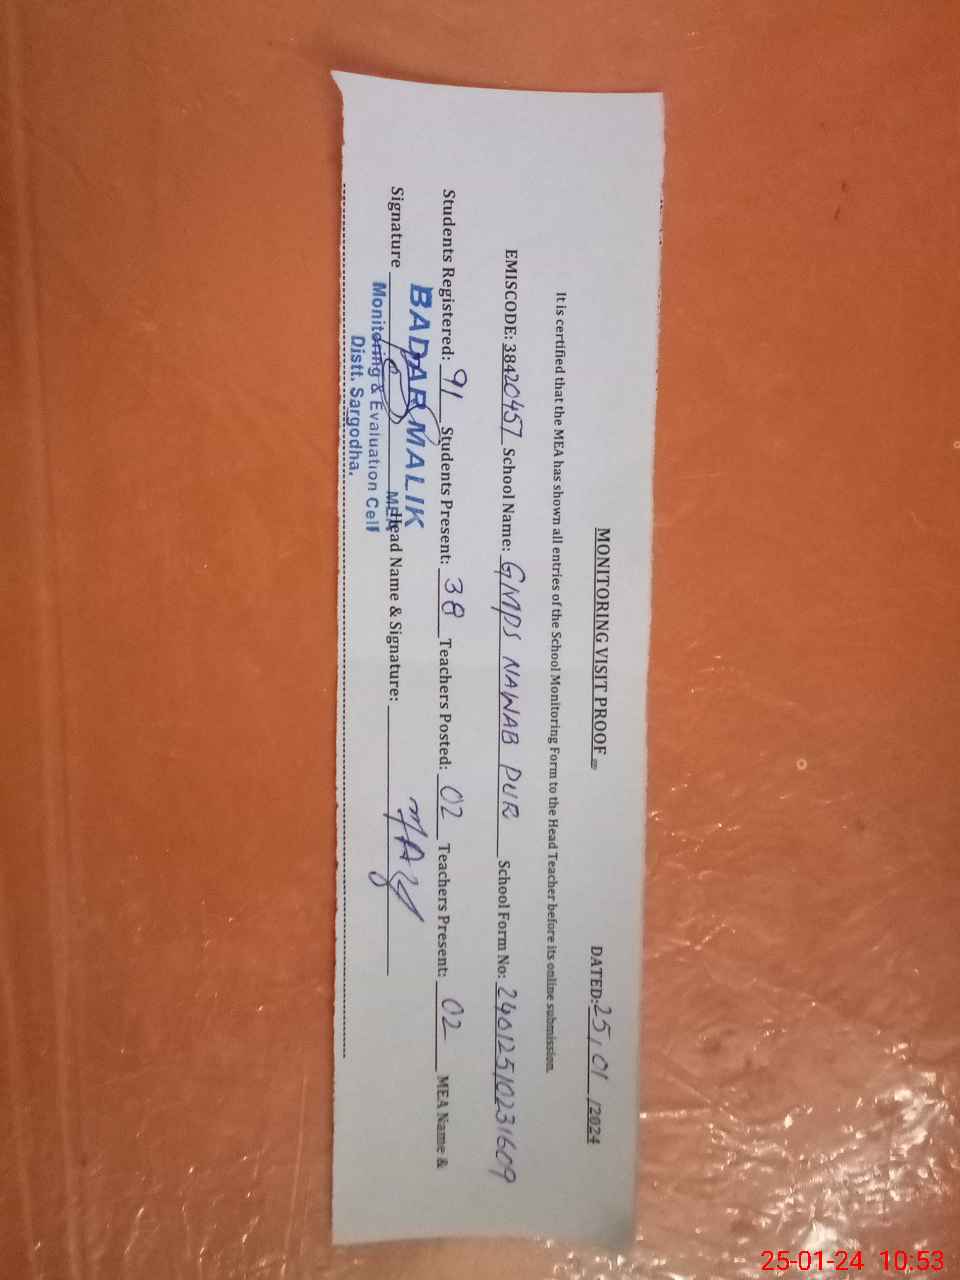 MONITORING VISIT PROOF DATED: 25/01/2024
It is certified that the MEA has shown all entries of the School Monitoring Form to the Head Teacher before its online submission.
EMISCODE: 38420457 School Name: GMPS NAWAB PUR School Form No: 24012510231609
Students Registered: 91 Students Present: 38 Teachers Posted: 02 Teachers Present: 02 MEA Name &
Signature Head Name & Signature:
BADAR MALIK
MEA
Monitoring & Evaluation Cell
Distt. Sargodha.
25-01-24 10:53